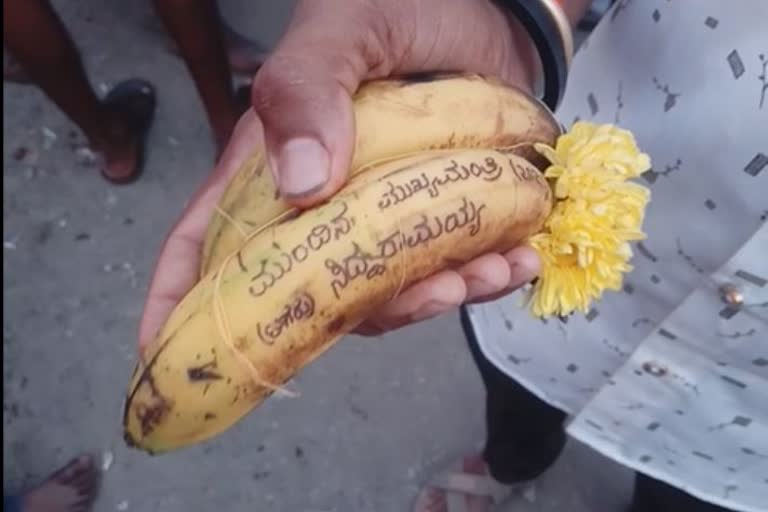 ಮುಂದಿನ ಮುಖ್ಯಮಂತ್ರಿ
ಸಿದ್ದರಾಮಯ್ಯ